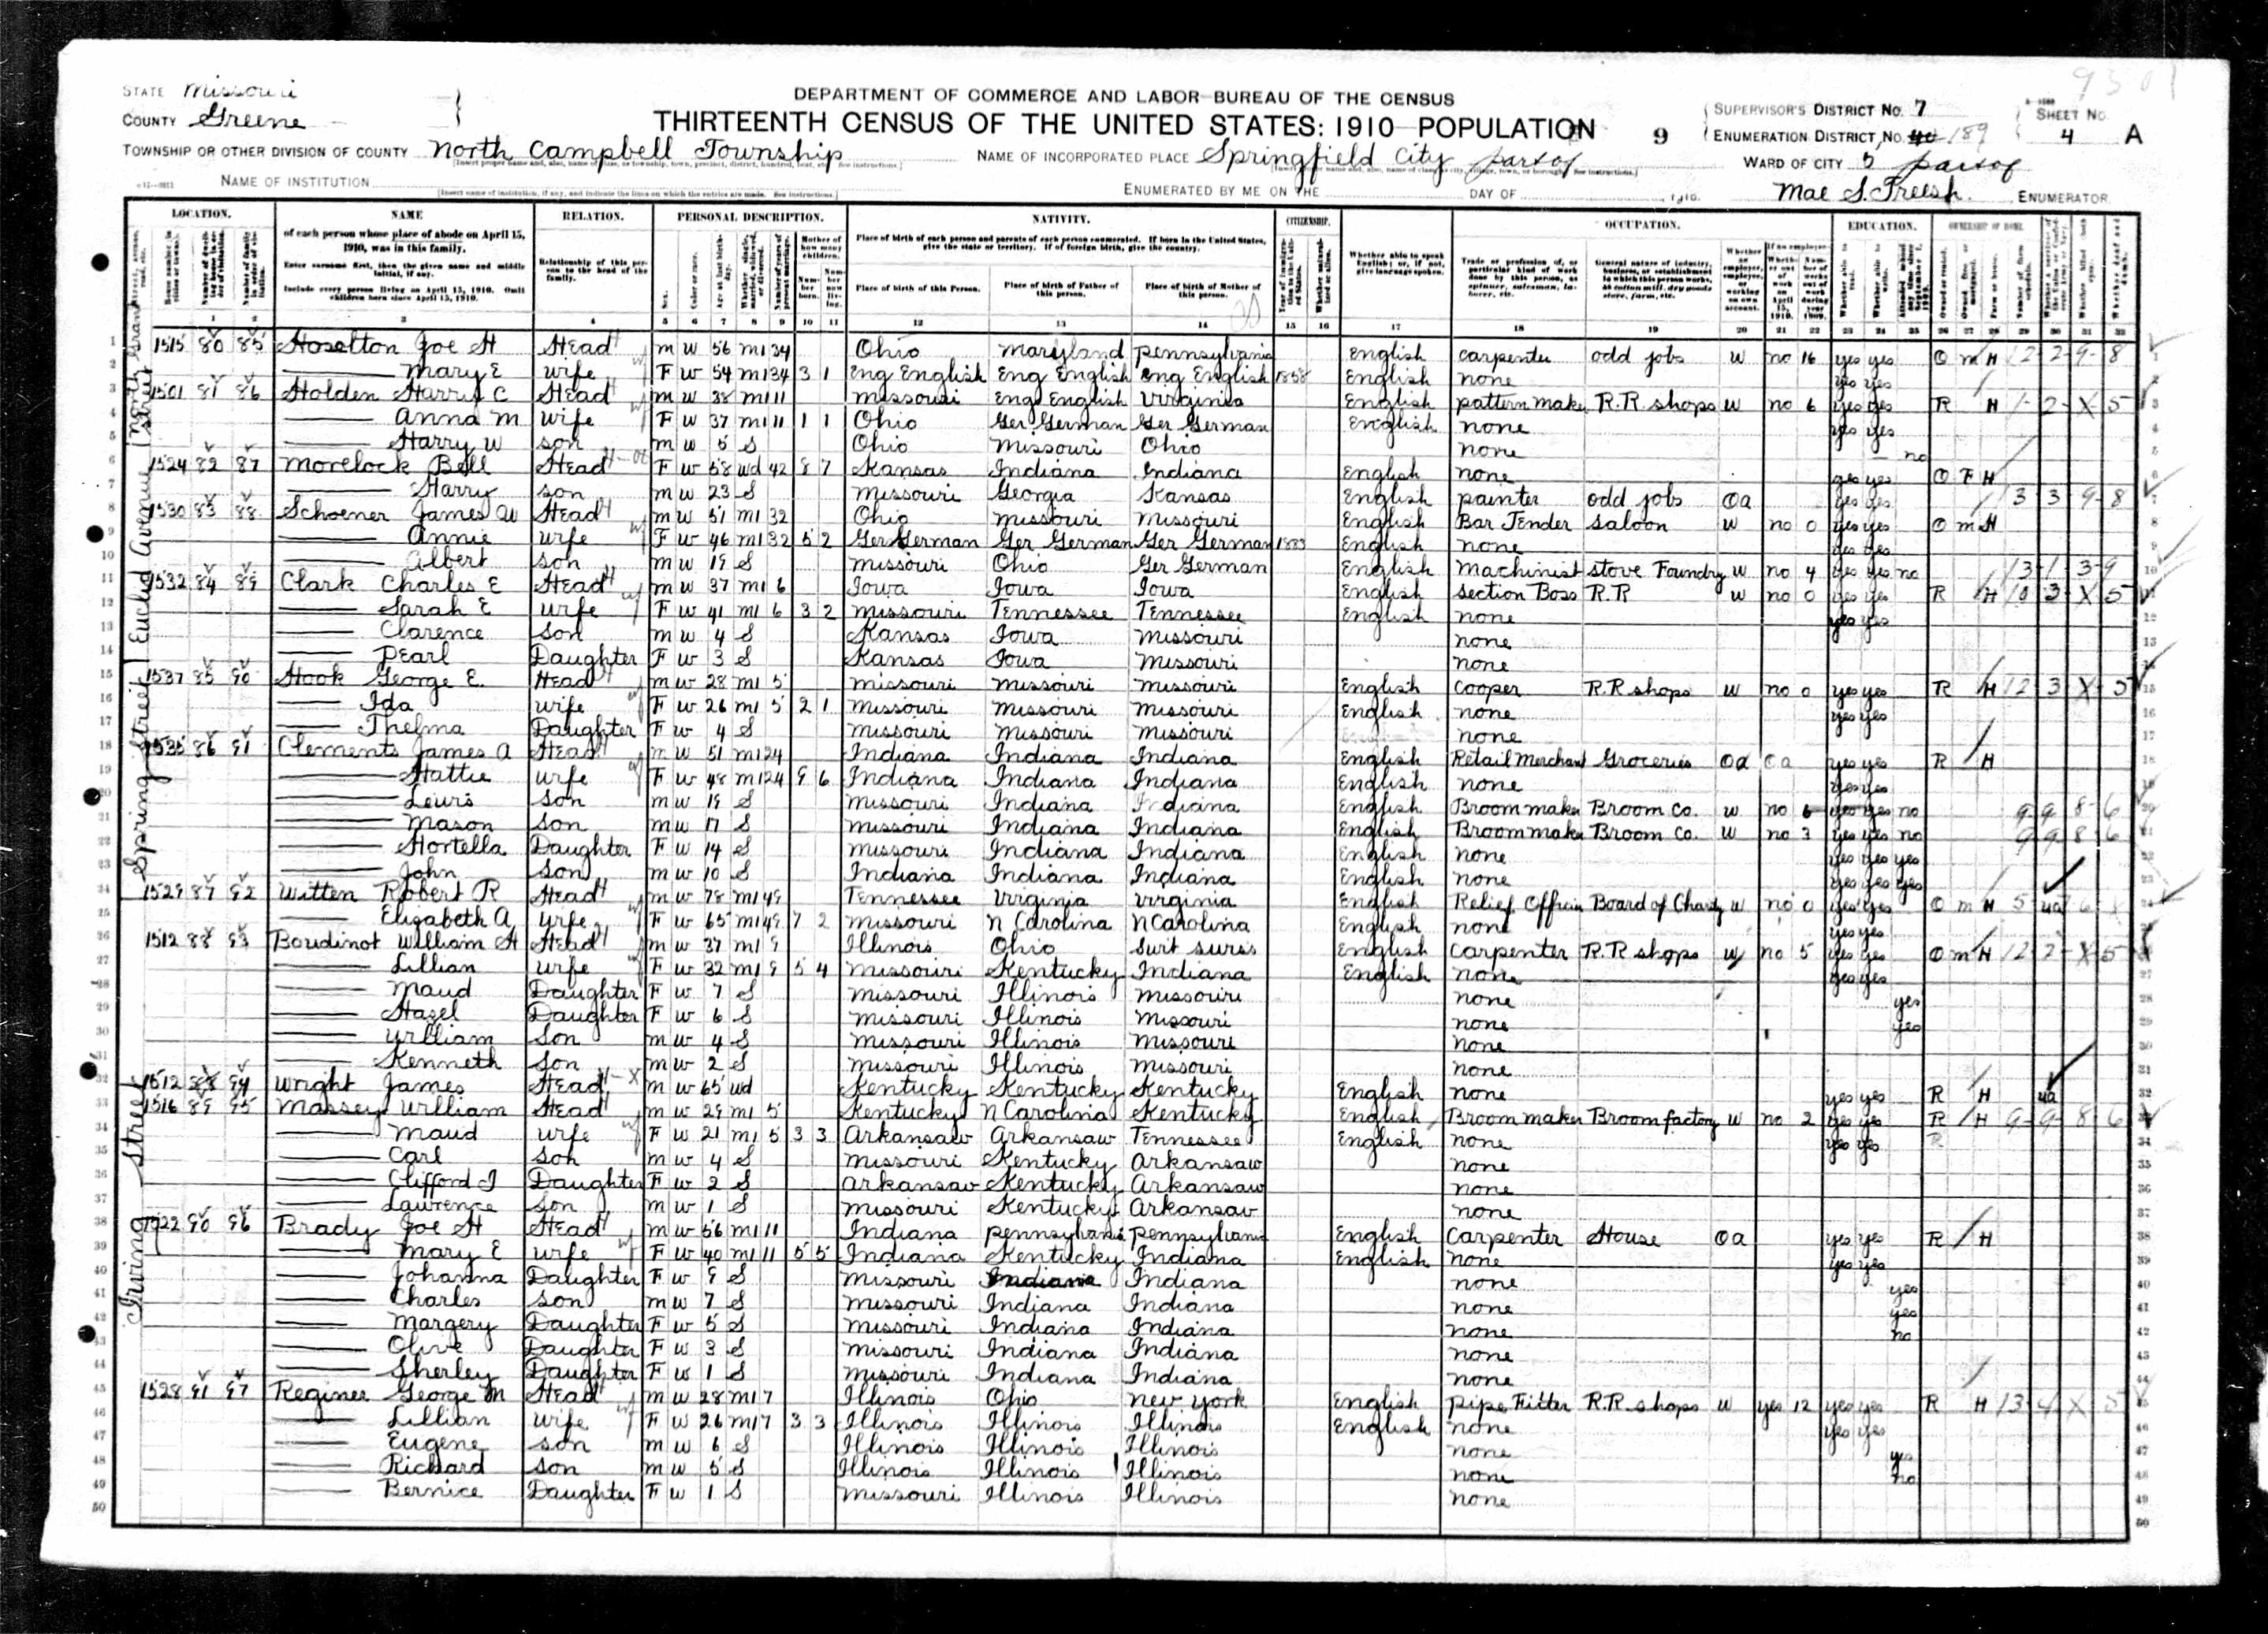 9501
STATE Missouri
COUNTY Greene
TOWNSHIP OR OTHER DIVISION OF COUNTY North Campbell Township
NAME OF INSTITUTION
DEPARTMENT OF COMMERCE AND LABOR-BUREAU OF THE CENSUS
THIRTEENTH CENSUS OF THE UNITED STATES: 1910 POPULATION
NAME OF INCORPORATED PLACE Springfield City part of
ENUMERATED BY ME ON THE DAY OF , 1910.
9
SUPERVISOR'S DISTRICT No. 7
ENUMERATION DISTRICT No. 189
WARD OF CITY 5 part of
SHEET No. 4 A
Mae S. Freesh. ENUMERATOR
LOCATION. NAME RELATION. PERSONAL DESCRIPTION. NATIVITY. CITIZENSHIP. OCCUPATION. EDUCATION. OWNERSHIP OF HOME.
of each person whose place of abode on April 15, 1910, was in this family.
Enter surname first, then the given name and middle initial, if any.
Include every person living on April 15, 1910. Omit children born since April 15, 1910.
Relationship of this person to the head of the family.
Place of birth of each person and parents of each person enumerated. If born in the United States, give the state or territory. If of foreign birth, give the country.
Place of birth of this Person. Place of birth of Father of this person. Place of birth of Mother of this person.
Whether able to speak English; or, if not, give language spoken.
1 2 3 4 5 6 7 8 9 10 11 12 13 14 15 16 17 18 19 20 21 22 23 24 25 26 27 28 29 30 31 32
North Grant Street
Euclid Avenue
Spring Street
Irving Street
1 1515 80 85 Hoselton Joe H Head m w 56 m1 34 Ohio Maryland Pennsylvania English carpenter odd jobs w no 16 yes yes O m H 12 2 9 8
2 Mary E wife F w 54 m1 34 3 1 Eng English Eng English Eng English 1858 English none yes yes
3 1501 81 86 Holden Harry C Head m w 38 m1 11 Missouri Eng English Virginia English pattern maker R.R shops w no 6 yes yes R H 1 2 X 5
4 Anna M wife F w 37 m1 11 1 1 Ohio Ger German Ger German English none yes yes
5 Harry W son m w 5 S Ohio Missouri Ohio none no
6 1524 82 87 Morelock Bell Head F w 58 wd 42 8 7 Kansas Indiana Indiana English none yes yes O F H
7 Harry son m w 23 S Missouri Georgia Kansas English painter odd jobs Oa yes yes 3 3 9 8
8 1530 83 88 Schoener James W Head m w 51 m1 32 Ohio Missouri Missouri English Bar Tender saloon w no 0 yes yes O m H
9 Annie wife F w 46 m1 32 5 2 Ger German Ger German Ger German 1883 English none yes yes
10 Albert son m w 19 S Missouri Ohio Ger German English Machinist stove Foundry w no 4 yes yes no 13 1 3 9
11 1532 84 89 Clark Charles E Head m w 37 m1 6 Iowa Iowa Iowa English section Boss R.R w no 0 yes yes R H 10 3 X 5
12 Sarah E wife F w 41 m1 6 3 2 Missouri Tennessee Tennessee English none yes yes
13 Clarence son m w 4 S Kansas Iowa Missouri none
14 Pearl Daughter F w 3 S Kansas Iowa Missouri none
15 1537 85 90 Hook George E. Head m w 28 m1 5 Missouri Missouri Missouri English Cooper R.R shops w no 0 yes yes R H 12 3 X 5
16 Ida wife F w 26 m1 5 2 1 Missouri Missouri Missouri English none yes yes
17 Thelma Daughter F w 4 S Missouri Missouri Missouri none
18 1535 86 91 Clements James A Head m w 51 m1 24 Indiana Indiana Indiana English Retail Merchant Groceries Oa Oa yes yes R H
19 Hattie wife F w 48 m1 24 9 6 Indiana Indiana Indiana English none yes yes
20 Lewis son m w 19 S Missouri Indiana Indiana English Broom maker Broom Co. w no 6 yes yes no 9 9 8 6
21 Mason son m w 17 S Missouri Indiana Indiana English Broom maker Broom Co. w no 3 yes yes no 9 9 8 6
22 Hortella Daughter F w 14 S Missouri Indiana Indiana English none yes yes yes
23 John son m w 10 S Indiana Indiana Indiana English none yes yes yes
24 1529 87 92 Witten Robert R Head m w 78 m1 49 Tennessee Virginia Virginia English Relief Officer Board of Charity w no 0 yes yes O m H 5 ua 6
25 Elizabeth A wife F w 65 m1 49 7 2 Missouri N Carolina N Carolina English none yes yes
26 1512 88 93 Boudinot William H Head m w 37 m1 9 Illinois Ohio Swit Swiss English Carpenter R.R shops w no 5 yes yes O m H 12 2 X 5
27 Lillian wife F w 32 m1 9 5 4 Missouri Kentucky Indiana English none yes yes
28 Maud Daughter F w 7 S Missouri Illinois Missouri none yes
29 Hazel Daughter F w 6 S Missouri Illinois Missouri none yes
30 William Son m w 4 S Missouri Illinois Missouri none
31 Kenneth Son m w 2 S Missouri Illinois Missouri none
32 1512 88 94 Wright James Head m w 65 wd Kentucky Kentucky Kentucky English none yes yes R H ua
33 1516 89 95 Massey William Head m w 29 m1 5 Kentucky N Carolina Kentucky English Broom maker Broom factory w no 2 yes yes R H 9 9 8 6
34 Maud wife F w 21 m1 5 3 3 Arkansaw Arkansaw Tennessee English none yes yes R
35 Carl son m w 4 S Missouri Kentucky Arkansaw none
36 Clifford I Daughter F w 2 S Arkansaw Kentucky Arkansaw none
37 Lawrence son m w 1 S Missouri Kentucky Arkansaw none
38 1522 90 96 Brady Joe H Head m w 56 m1 11 Indiana Pennsylvania Pennsylvania English Carpenter House Oa yes yes R H
39 Mary E wife F w 40 m1 11 5 5 Indiana Kentucky Indiana English none yes yes
40 Johanna Daughter F w 9 S Missouri Indiana Indiana none yes
41 Charles son m w 7 S Missouri Indiana Indiana none yes
42 Margery Daughter F w 5 S Missouri Indiana Indiana none no
43 Olive Daughter F w 3 S Missouri Indiana Indiana none
44 Sherley Daughter F w 1 S Missouri Indiana Indiana none
45 1528 91 97 Reginer George M Head m w 28 m1 7 Illinois Ohio New York English Pipe Fitter R.R. shops w yes 12 yes yes R H 13 4 X 5
46 Lillian wife F w 26 m1 7 3 3 Illinois Illinois Illinois English none yes yes
47 Eugene son m w 6 S Illinois Illinois Illinois none yes
48 Richard son m w 5 S Illinois Illinois Illinois none no
49 Bernice Daughter F w 1 S Missouri Illinois Illinois none
50